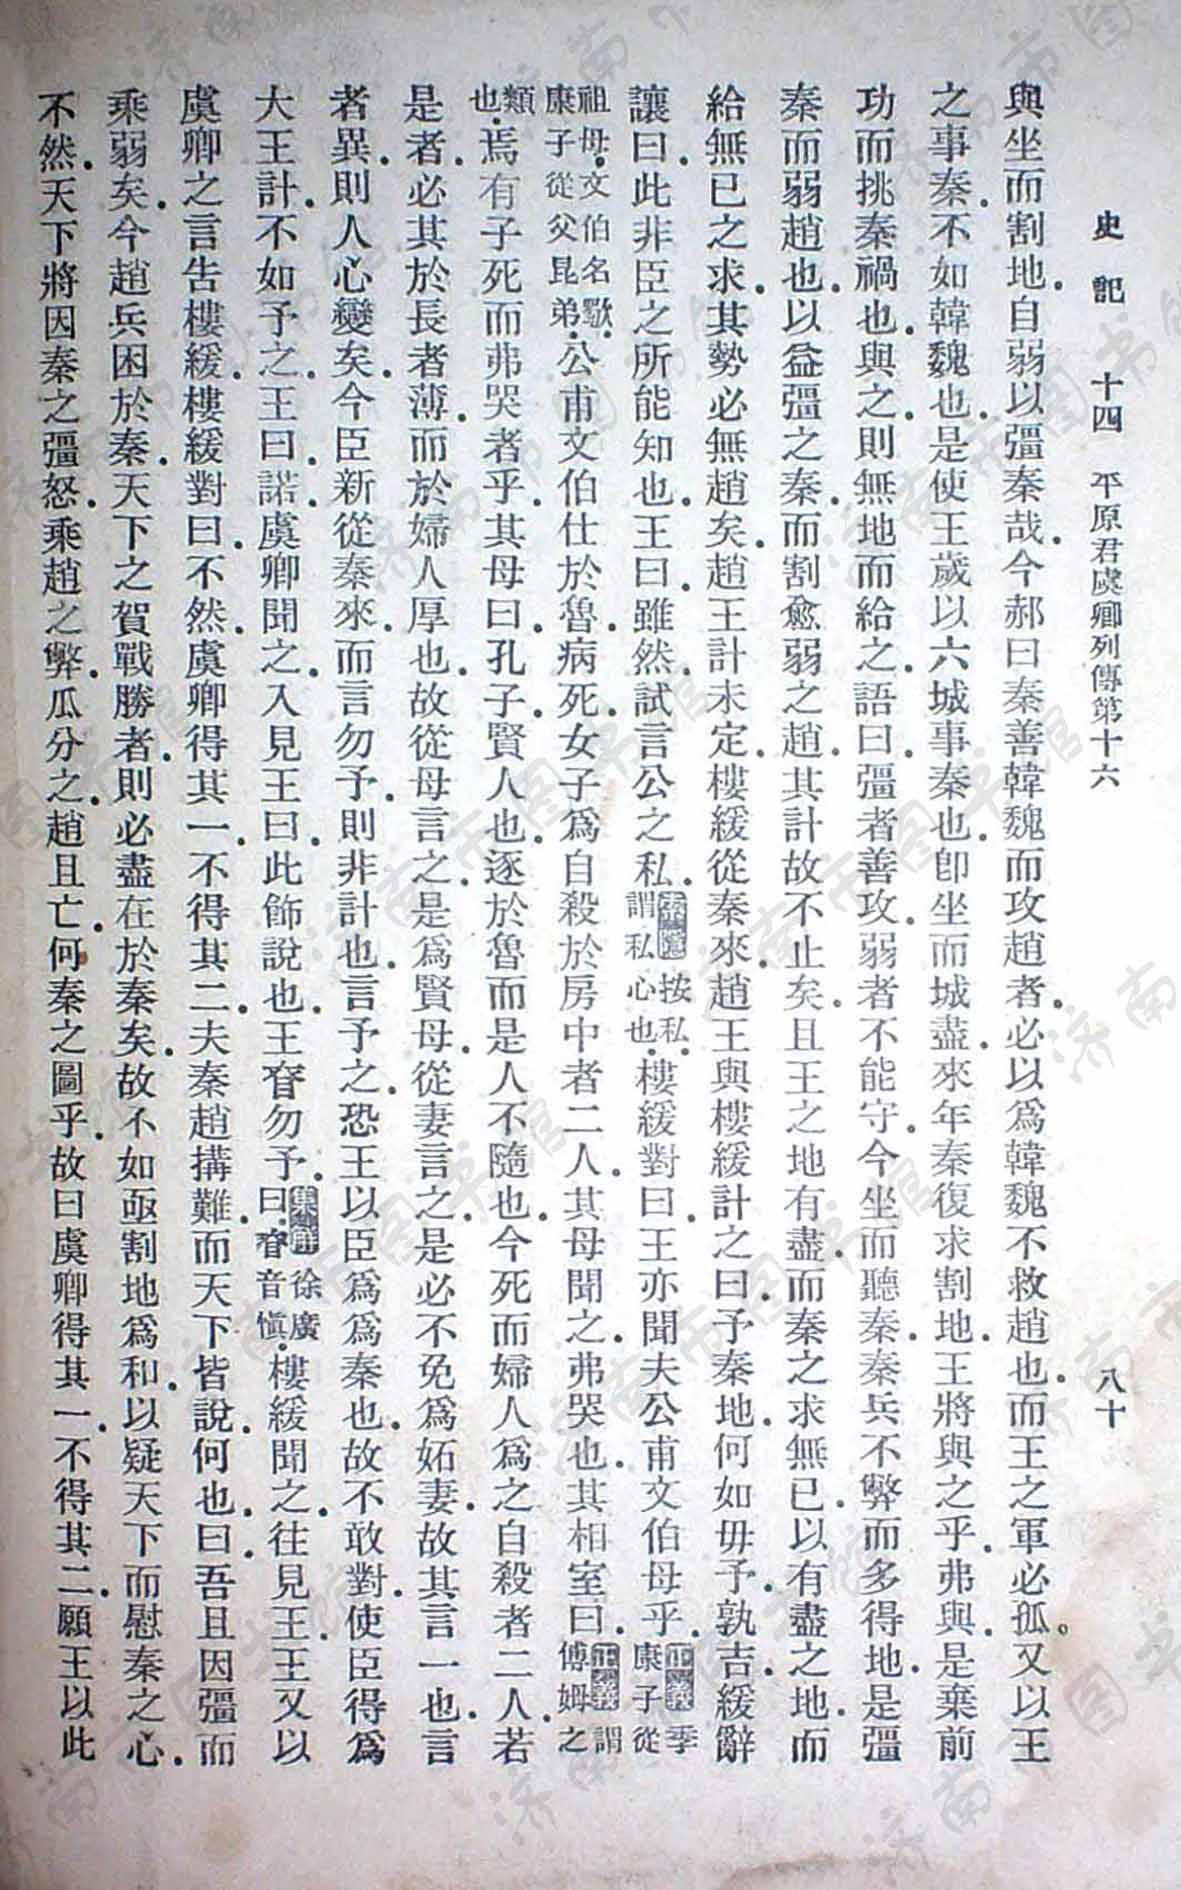 史記 十四 平原君虞卿列傳第十六 八十
與坐而割地.自弱以彊秦哉.今郝曰秦善韓魏而攻趙者.必以爲韓魏不救趙也.而王之軍必孤。又以王
之事秦.不如韓魏也.是使王歲以六城事秦也.卽坐而城盡.來年秦復求割地.王將與之乎.弗與.是棄前
功而挑秦禍也.與之.則無地而給之.語曰.彊者善攻.弱者不能守.今坐而聽秦.秦兵不弊而多得地.是彊
秦而弱趙也.以益彊之秦.而割愈弱之趙.其計故不止矣.且王之地有盡.而秦之求無已.以有盡之地.而
給無已之求.其勢必無趙矣.趙王計未定.樓緩從秦來.趙王與樓緩計之曰.予秦地.何如毋予.孰吉.緩辭
讓曰.此非臣之所能知也.王曰.雖然.試言公之私.索隱按私謂私心也.樓緩對曰.王亦聞夫公甫文伯母乎.正義季康子從
祖母.文伯名歜.康子從父昆弟.公甫文伯仕於魯.病死.女子爲自殺於房中者二人.其母聞之.弗哭也.其相室曰.正義謂傅姆之
類也.焉有子死而弗哭者乎.其母曰.孔子.賢人也.逐於魯.而是人不隨也.今死而婦人爲之自殺者二人.若
是者.必其於長者薄.而於婦人厚也.故從母言之.是爲賢母.從妻言之.是必不免爲妬妻.故其言一也.言
者異.則人心變矣.今臣新從秦來.而言勿予.則非計也.言予之.恐王以臣爲爲秦也.故不敢對.使臣得爲
大王計.不如予之.王曰.諾.虞卿聞之.入見王曰.此飾說也.王眘勿予.集解徐廣曰.眘音愼.樓緩聞之.往見王.王又以
虞卿之言告樓緩.樓緩對曰.不然.虞卿得其一.不得其二.夫秦趙搆難.而天下皆說.何也.曰.吾且因彊而
乘弱矣.今趙兵困於秦.天下之賀戰勝者.則必盡在於秦矣.故不如亟割地爲和.以疑天下而慰秦之心.
不然.天下將因秦之彊怒.乘趙之弊.瓜分之.趙且亡.何秦之圖乎.故曰虞卿得其一.不得其二.願王以此